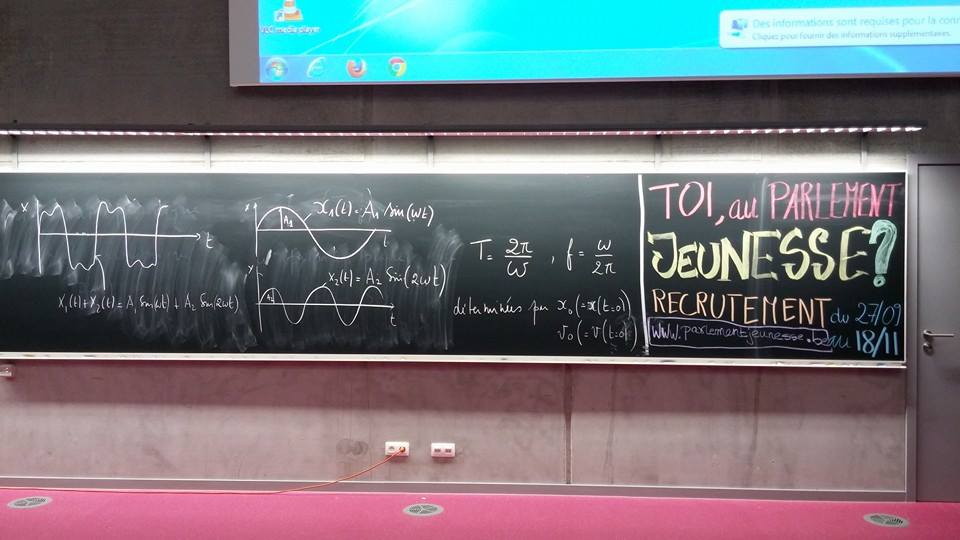 VLC media player
Des informations sont requises pour la con
Cliquez pour fournir des informations supplémentaires.
x
t
x₁(t)+x₂(t) = A₁ sin(ωt) + A₂ sin(2ωt)
x
A₁
x₁(t) = A₁ sin(ωt)
t
y
A₂
x₂(t) = A₂ sin(2ωt)
t
T = 2π/ω , f = ω/2π
déterminées par x₀ (= x(t=0))
v₀ (= v(t=0))
TOI, au PARLEMENT
JEUNESSE?
RECRUTEMENT du 27/09
www.parlementjeunesse.be au 18/11